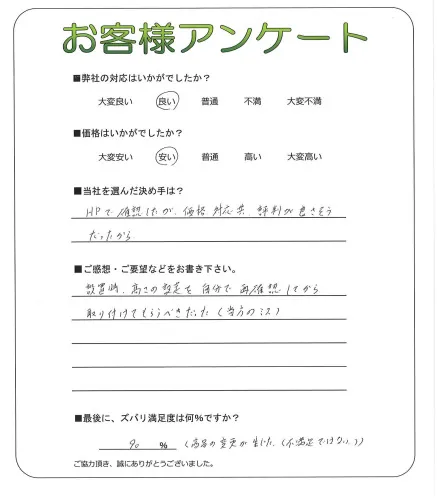 お客様アンケート
■弊社の対応はいかがでしたか？
大変良い 良い 普通 不満 大変不満
■価格はいかがでしたか？
大変安い 安い 普通 高い 大変高い
■当社を選んだ決め手は？
HPで確認したが、価格 対応共 評判が良さそう
だったから
■ご感想・ご要望などをお書き下さい。
設置時、高さの設定を自分で再確認してから
取り付けてもらうべきだった（当方のミス）
■最後に、ズバリ満足度は何％ですか？
90 ％ （高さの変更が生じた（不満足ではない））
ご協力頂き、誠にありがとうございました。